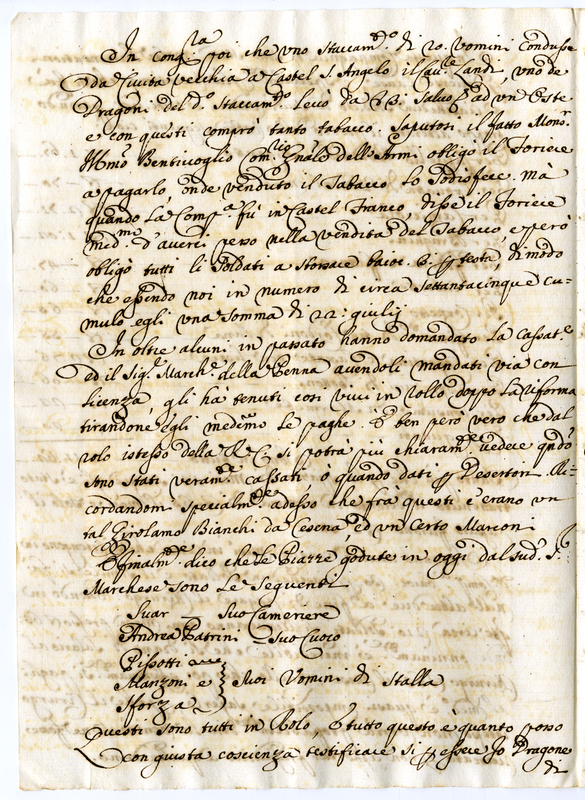 In cong.la poi che uno staccam.to di 20. uomini condusse
da Civita vecchia a Castel S. Angelo il Cau.re Landi, uno de
Dragoni del d.o staccam.to levò da 23. Salvo ad un Oste
e con questi comprò tanto tabacco. Saputosi il fatto Mons.r
Ill.mo Bentivoglio Com.rio Gn'ale dell'Armi obligò il Foriere
a pagarlo, onde venduto il Tabacco lo sodisfece. Mà
quando la Comp.a fù in Castel Franco, disse il Foriere
med.mo d'averci perso nella vendita del Tabacco, e però
obligò tutti li Soldati a sborsare baioc. 3. per testa, di modo
che essendo noi in numero di circa settantacinque cu=
mulò egli una somma di 22: giulij
In oltre alcuni in passato hanno domandato la cassat.a
ed il Sig.r March.e della Penna avendoli mandati via con
licenza, gli hà tenuti così vivi in rollo doppo la riforma
tirandone egli medemo le paghe. È ben però vero che dal
rolo istesso della R. C. si potrà più chiaram.te vedere qndo
sono stati veram.te cassati, ò quando dati per Desertori. Ri=
cordandomi specialm.te adesso che frà questi v'erano un
tal Girolamo Bianchi da Cesena, ed un certo Marconi
E finalm.te dico che le Piazze godute in oggi dal sud.o S.r
Marchese sono le seguenti
Suar — suo Cameriere
Andrea Patrini — suo Cuoco
Pissotti
Manzoni e } suoi Uomini di stalla
Sforza
Questi sono tutti in Rolo, e tutto questo è quanto posso
con giusta coscienza testificare si per essere io Dragone
di